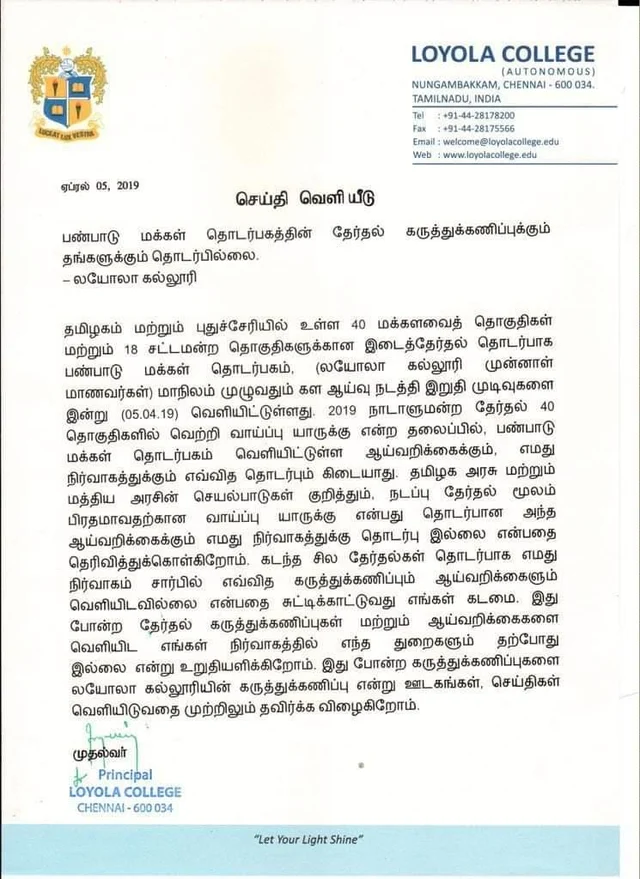 LOYOLA COLLEGE
(AUTONOMOUS)
NUNGAMBAKKAM, CHENNAI - 600 034.
TAMILNADU, INDIA
Tel : +91-44-28178200
Fax : +91-44-28175566
Email : welcome@loyolacollege.edu
Web : www.loyolacollege.edu
LUCEAT LUX VESTRA
ஏப்ரல் 05, 2019
செய்தி வெளியீடு
பண்பாடு மக்கள் தொடர்பகத்தின் தேர்தல் கருத்துக்கணிப்புக்கும்
தங்களுக்கும் தொடர்பில்லை.
– லயோலா கல்லூரி
தமிழகம் மற்றும் புதுச்சேரியில் உள்ள 40 மக்களவைத் தொகுதிகள்
மற்றும் 18 சட்டமன்ற தொகுதிகளுக்கான இடைத்தேர்தல் தொடர்பாக
பண்பாடு மக்கள் தொடர்பகம், (லயோலா கல்லூரி முன்னாள்
மாணவர்கள்) மாநிலம் முழுவதும் கள ஆய்வு நடத்தி இறுதி முடிவுகளை
இன்று (05.04.19) வெளியிட்டுள்ளது. 2019 நாடாளுமன்ற தேர்தல் 40
தொகுதிகளில் வெற்றி வாய்ப்பு யாருக்கு என்ற தலைப்பில், பண்பாடு
மக்கள் தொடர்பகம் வெளியிட்டுள்ள ஆய்வறிக்கைக்கும், எமது
நிர்வாகத்துக்கும் எவ்வித தொடர்பும் கிடையாது. தமிழக அரசு மற்றும்
மத்திய அரசின் செயல்பாடுகள் குறித்தும், நடப்பு தேர்தல் மூலம்
பிரதமாவதற்கான வாய்ப்பு யாருக்கு என்பது தொடர்பான அந்த
ஆய்வறிக்கைக்கும் எமது நிர்வாகத்துக்கு தொடர்பு இல்லை என்பதை
தெரிவித்துக்கொள்கிறோம். கடந்த சில தேர்தல்கள் தொடர்பாக எமது
நிர்வாகம் சார்பில் எவ்வித கருத்துக்கணிப்பும் ஆய்வறிக்கைகளும்
வெளியிடவில்லை என்பதை சுட்டிக்காட்டுவது எங்கள் கடமை. இது
போன்ற தேர்தல் கருத்துக்கணிப்புகள் மற்றும் ஆய்வறிக்கைகளை
வெளியிட எங்கள் நிர்வாகத்தில் எந்த துறைகளும் தற்போது
இல்லை என்று உறுதியளிக்கிறோம். இது போன்ற கருத்துக்கணிப்புகளை
லயோலா கல்லூரியின் கருத்துக்கணிப்பு என்று ஊடகங்கள், செய்திகள்
வெளியிடுவதை முற்றிலும் தவிர்க்க விழைகிறோம்.
முதல்வர்
Principal
LOYOLA COLLEGE
CHENNAI - 600 034
“Let Your Light Shine”